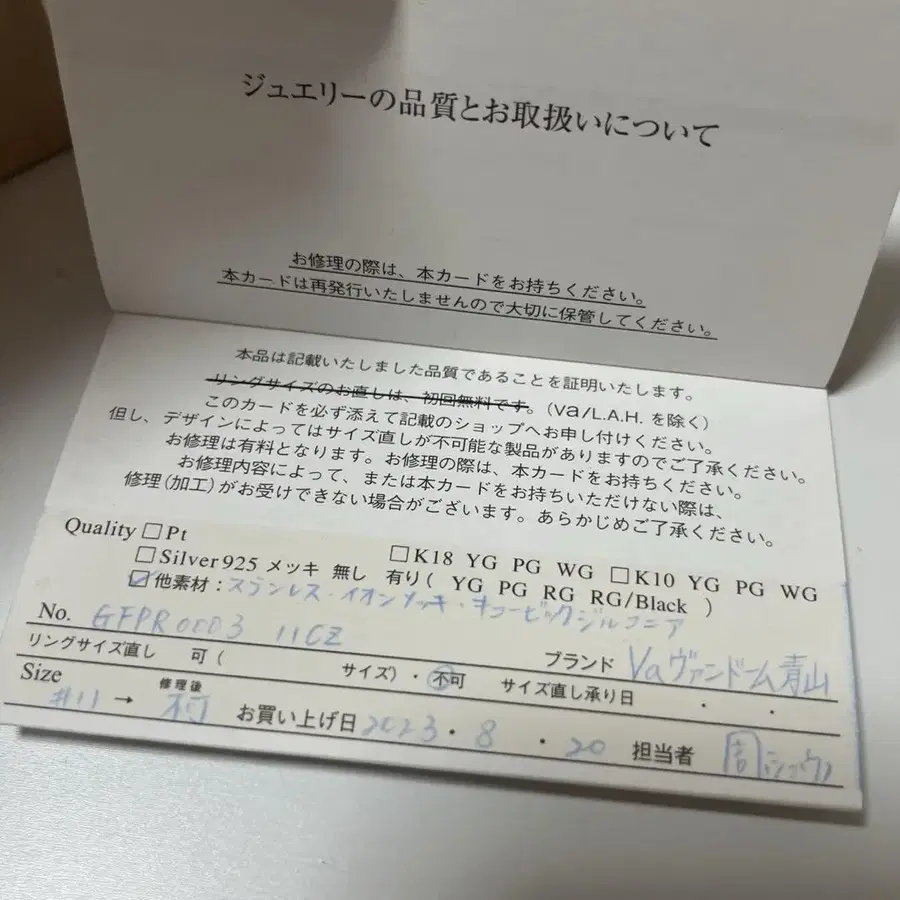 ジュエリーの品質とお取扱いについて
お修理の際は、本カードをお持ちください。
本カードは再発行いたしませんので大切に保管してください。
本品は記載いたしました品質であることを証明いたします。
リングサイズのお直しは、初回無料です。(Va/L.A.H. を除く)
このカードを必ず添えて記載のショップへお申し付けください。
但し、デザインによってはサイズ直しが不可能な製品がありますのでご了承ください。
お修理は有料となります。お修理の際は、本カードをお持ちください。
お修理内容によって、または本カードをお持ちいただけない際は、
修理(加工)がお受けできない場合がございます。あらかじめご了承ください。
Quality □Pt □K18 YG PG WG □K10 YG PG WG
□Silver925 メッキ 無し 有り( YG PG RG RG/Black )
☑他素材:ステンレス・イオンメッキ・キュービックジルコニア
No. GFPR0003 11CZ ブランド Vaヴァンドーム青山
リングサイズ直し 可( サイズ)・不可 サイズ直し承り日 ・ ・
Size #11 → 修理後 不可 お買い上げ日 2023・8・20 担当者 周